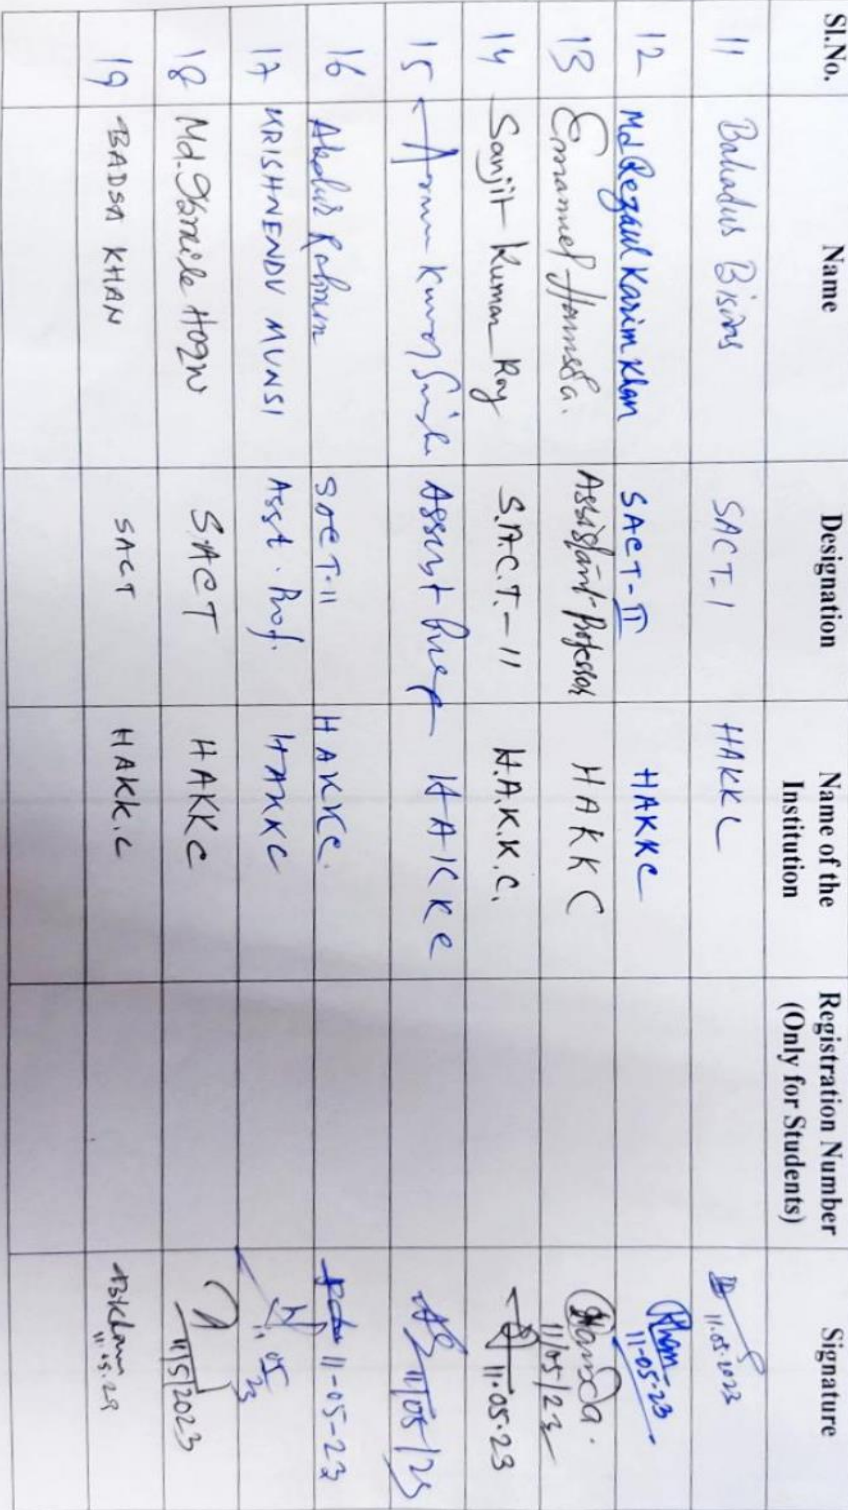 Sl.No. Name Designation Name of the Institution Registration Number (Only for Students) Signature
11 Bahadur Biswas SACT-1 HAKKC 11.05.2023
12 Md Rezaul Karim Khan SACT-II HAKKC Khan 11-05-23
13 Emanuel Hansda. Assistant Professor HAKKC Hansda. 11/05/23
14 Sanjit Kumar Roy S.A.C.T.-11 H.A.K.K.C. 11.05.23
15 HAKKC 11/05/23
16 Abdur Rahman SACT-11 HAKKC. 11-05-23
17 KRISHNENDU MUNSI Asst. Prof. HAKKC 11 05 23
18 Md. SACT HAKKC 11/5/2023
19 BADSA KHAN SACT HAKK.C BKhan